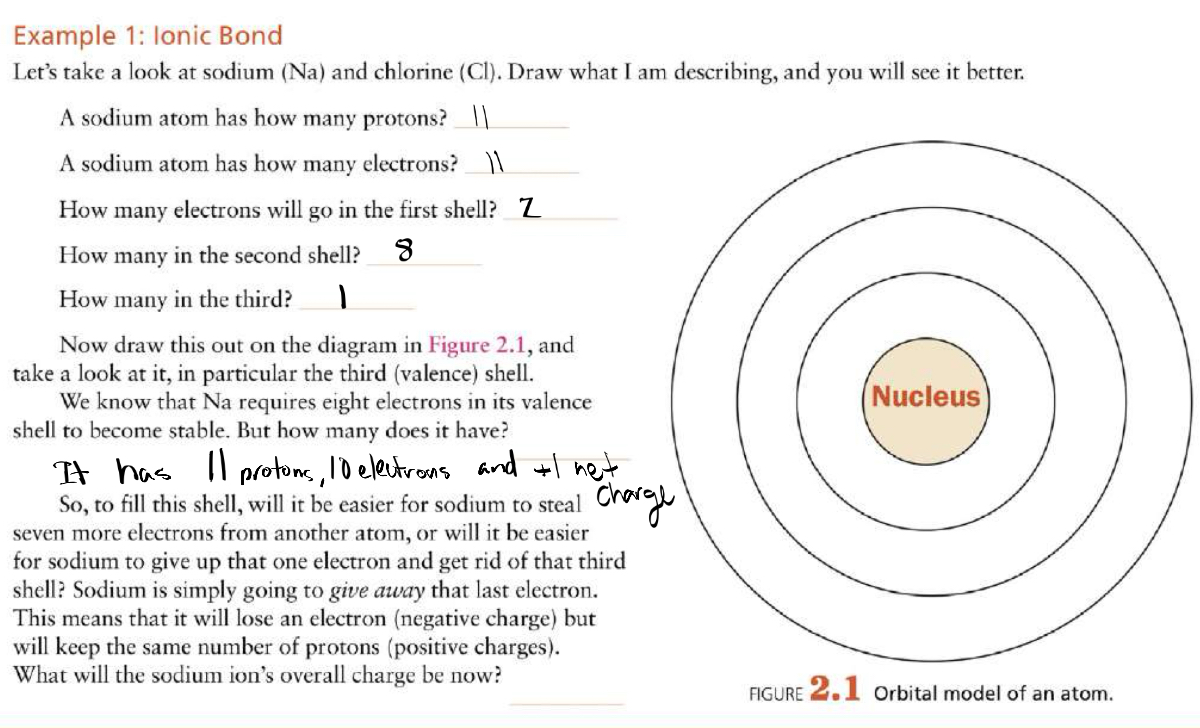 Example 1: Ionic Bond
Let's take a look at sodium (Na) and chlorine (Cl). Draw what I am describing, and you will see it better.
A sodium atom has how many protons? 11
A sodium atom has how many electrons? 11
How many electrons will go in the first shell? 2
How many in the second shell? 8
How many in the third? 1
Now draw this out on the diagram in Figure 2.1, and
take a look at it, in particular the third (valence) shell.
We know that Na requires eight electrons in its valence
shell to become stable. But how many does it have?
It has 11 protons, 10 electrons and +1 net
charge
So, to fill this shell, will it be easier for sodium to steal
seven more electrons from another atom, or will it be easier
for sodium to give up that one electron and get rid of that third
shell? Sodium is simply going to give away that last electron.
This means that it will lose an electron (negative charge) but
will keep the same number of protons (positive charges).
What will the sodium ion's overall charge be now?
Nucleus
FIGURE 2.1 Orbital model of an atom.